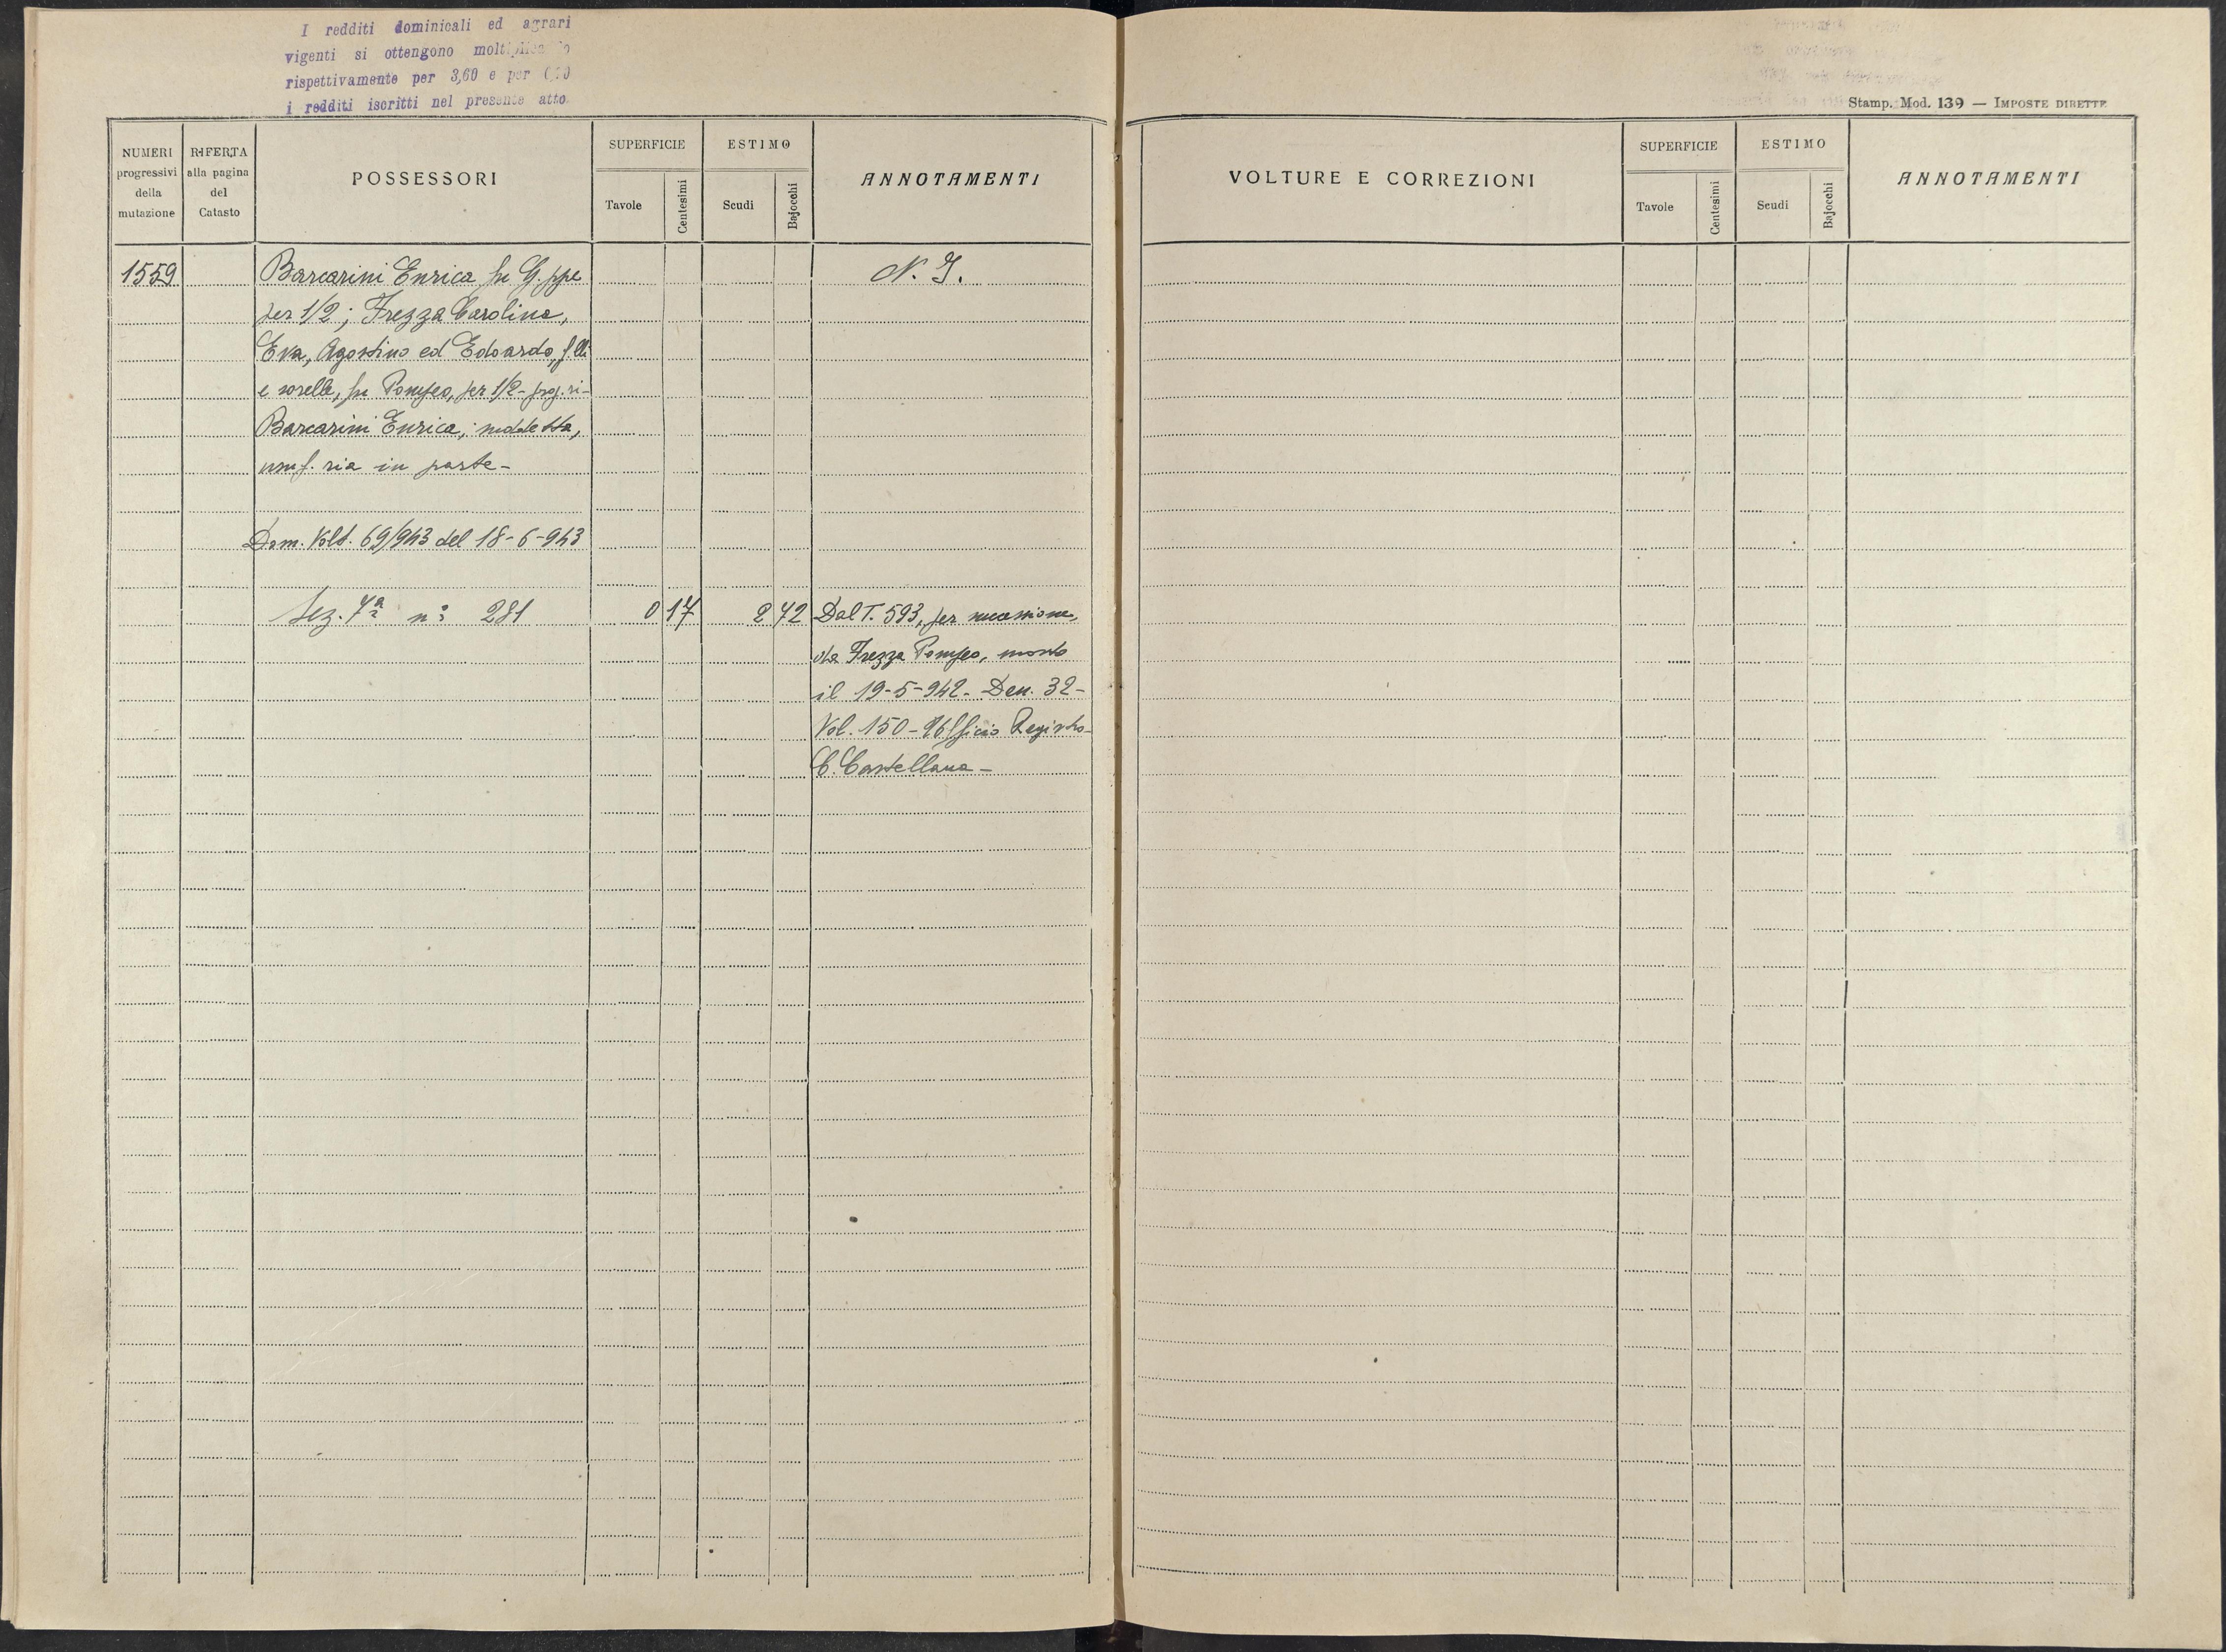 I redditi dominicali ed agrari
vigenti si ottengono moltiplicando
rispettivamente per 3,60 e per
i redditi iscritti nel presente atto
Stamp. Mod. 139 — IMPOSTE DIRETTE
NUMERI progressivi della mutazione
RIFERTA alla pagina del Catasto
POSSESSORI
SUPERFICIE
Tavole
Centesimi
ESTIMO
Scudi
Bajocchi
ANNOTAMENTI
VOLTURE E CORREZIONI
SUPERFICIE
Tavole
Centesimi
ESTIMO
Scudi
Bajocchi
ANNOTAMENTI
1559 Barcarini Enrica fu G.ppe N. I.
per 1/2; Frezza Carolina,
Eva, Agostino ed Edoardo, f.lli
e sorelle, fu Pompeo, per 1/2 - prop. ri -
Barcarini Enrica, suddetta,
usuf. ria in parte -
Dom. Volt. 69/943 del 18-6-943
Sez. 7ª n° 281 0 17 2 72 Dal T. 593, per successione,
da Frezza Pompeo, morto
il 19-5-942. Den. 32 -
Vol. 150 - Ufficio Registro -
C. Castellana -